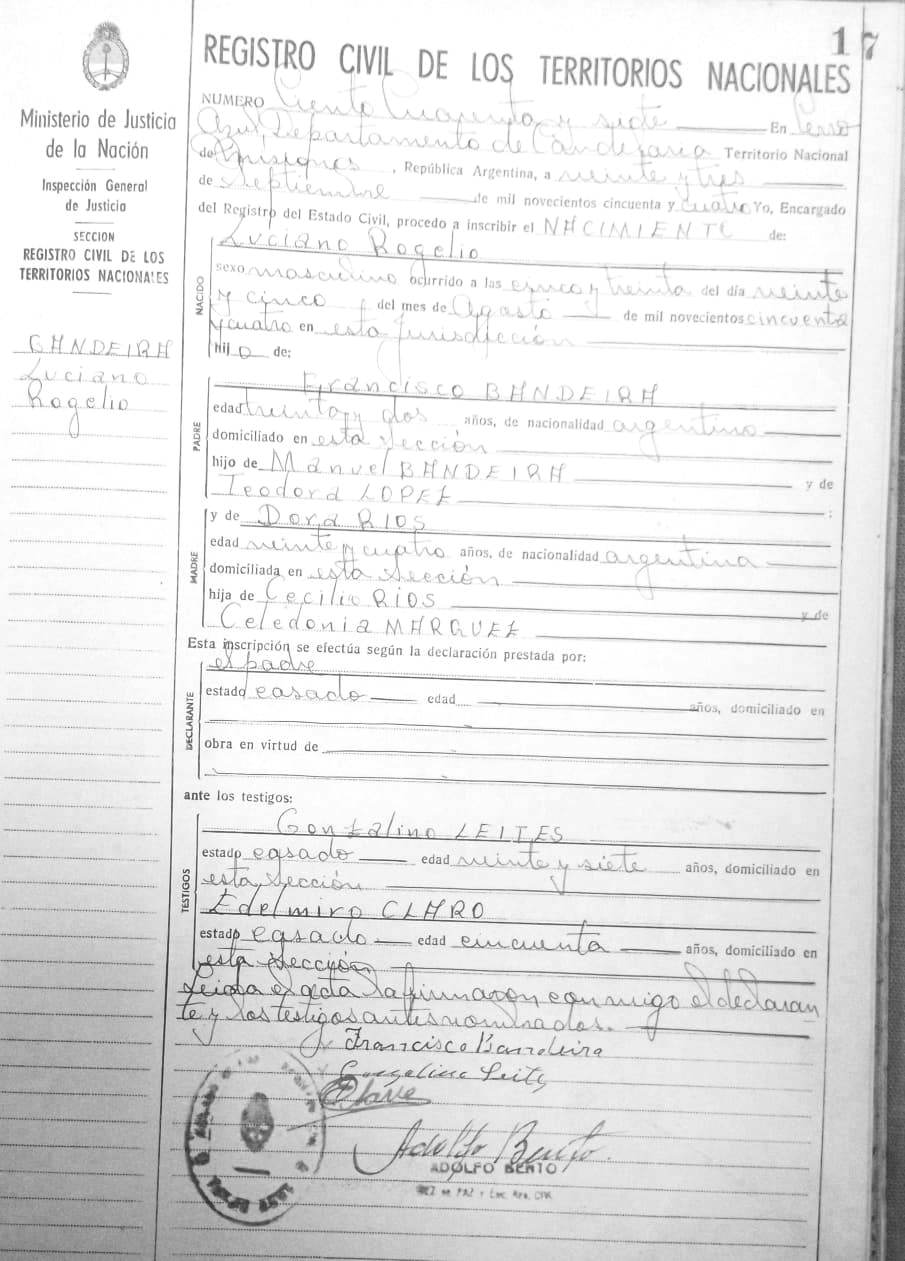 17
REGISTRO CIVIL DE LOS TERRITORIOS NACIONALES
Ministerio de Justicia
de la Nación
Inspección General
de Justicia
SECCION
REGISTRO CIVIL DE LOS
TERRITORIOS NACIONALES
BANDEIRA
Luciano
Rogelio
NUMERO Ciento Cuarenta y siete En Cerro
Azul, Departamento de Candelaria Territorio Nacional
de Misiones, República Argentina, a veinte y tres
de Septiembre de mil novecientos cincuenta y cuatro Yo, Encargado
del Registro del Estado Civil, procedo a inscribir el NACIMIENTO de:
NACIDO
Luciano Rogelio
sexo masculino ocurrido a las cinco y treinta del día veinte
y cinco del mes de Agosto de mil novecientos cincuenta
y cuatro en esta jurisdicción
hijo de:
PADRE
Francisco BANDEIRA
edad treinta y dos años, de nacionalidad argentino
domiciliado en esta sección
hijo de Manuel BANDEIRA y de
Teodora LOPEZ :
MADRE
y de Dora RIOS
edad veinte y cuatro años, de nacionalidad argentina
domiciliada en esta sección
hija de Cecilio RIOS y de
Celedonia MARQUEZ
Esta inscripción se efectúa según la declaración prestada por:
DECLARANTE
el padre
estado casado edad años, domiciliado en
obra en virtud de
ante los testigos:
TESTIGOS
Gonzalino LEITES
estado casado edad veinte y siete años, domiciliado en
esta sección
Edelmiro CLARO
estado casado edad cincuenta años, domiciliado en
esta sección
Leida el acta la firmaron conmigo el declaran
te y los testigos antes nominados.
Francisco Bandeira
Leites
Adolfo Bento
ADOLFO BENTO
JUEZ DE PAZ Y ENC. REG. CIVIL